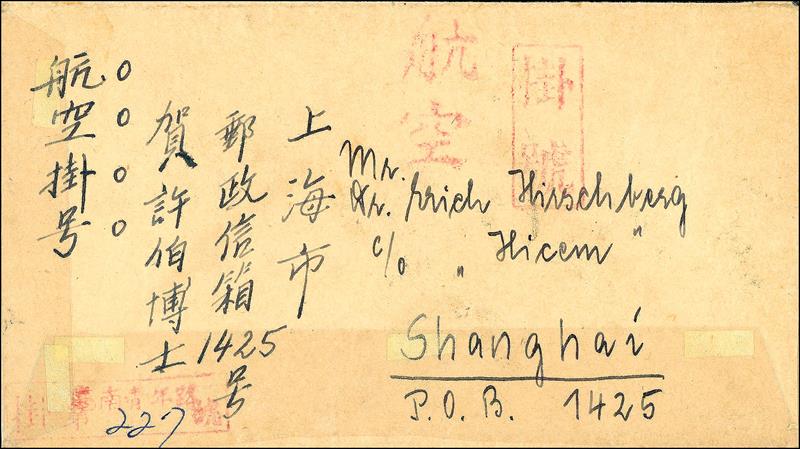 航空
掛號
上海市
郵政信箱1425号
賀許伯博士
航空掛号
Mr.
Dr. Erich Hirschberg
c/o „ Hicem "
Shanghai
P.O.B. 1425
掛
227